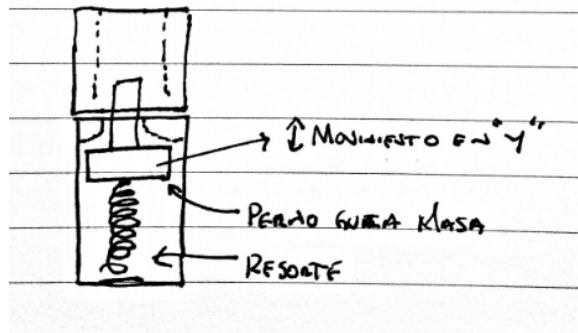 ↕ MOVIMIENTO EN "Y"
PERNO GUIA MASA
RESORTE